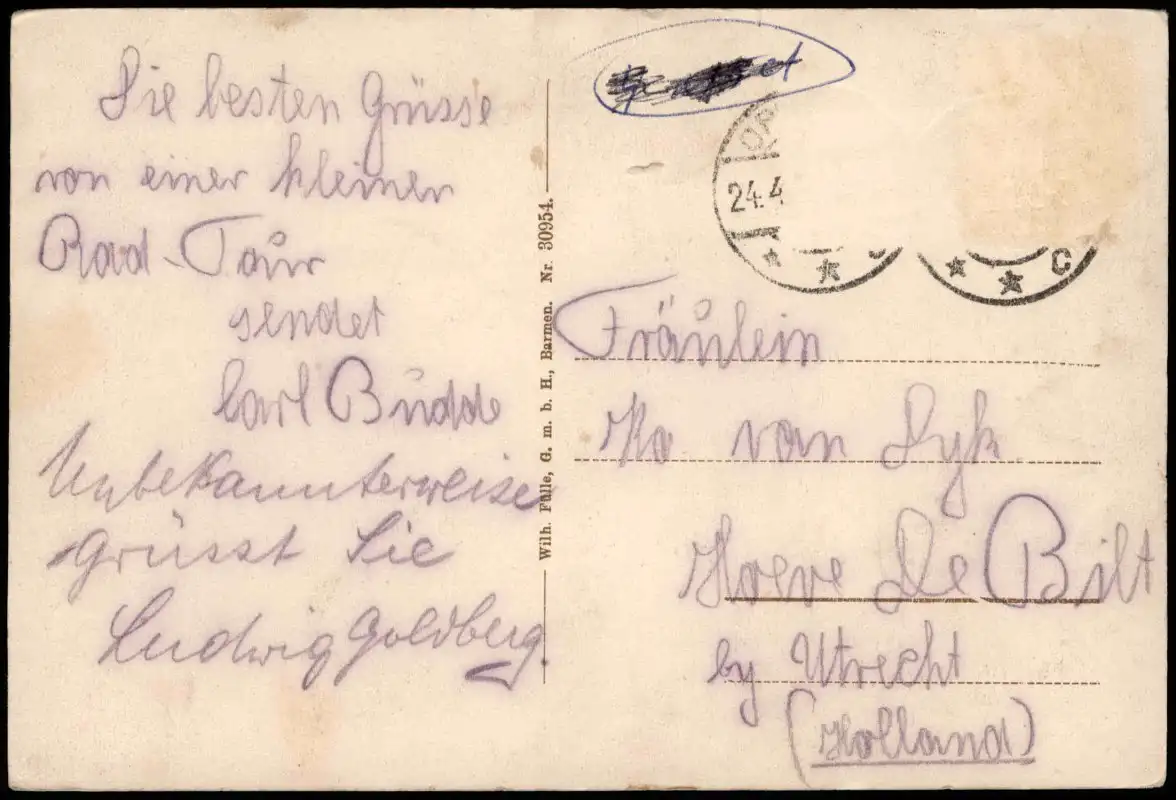 Die besten Grüsse
von einer kleinen
Rad-Tour
sendet
Carl Budde
Unbekannterweise
grüsst Sie
Ludwig Goldberg
Wilh. Fülle, G. m. b. H., Barmen. Nr. 30954.
24.4
C
Fräulein
Ko van Dyk
Hoeve De Bilt
by Utrecht
(Holland)